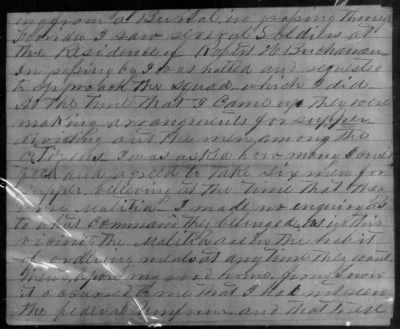 ing from a Burial in passing through
Florida I saw several Soldiers at
the Residence of Robert H Buchanan
In passing by I was halted and requested
to approach the squad which I did
At the time that I came up they were
making arrangements for supper
dividing out the men among the
Citizens I was asked how many I could
feed and agreed to take six men for
supper, believing at the time that they
were Malitia I made no enquiry as
to what Command they belonged, as in this
vicinity the Malitia are in the habit
of ordering meals at any time they want
them, Upon my road home from Town
it occurred to me that I had not seen
the federal uniform and that these